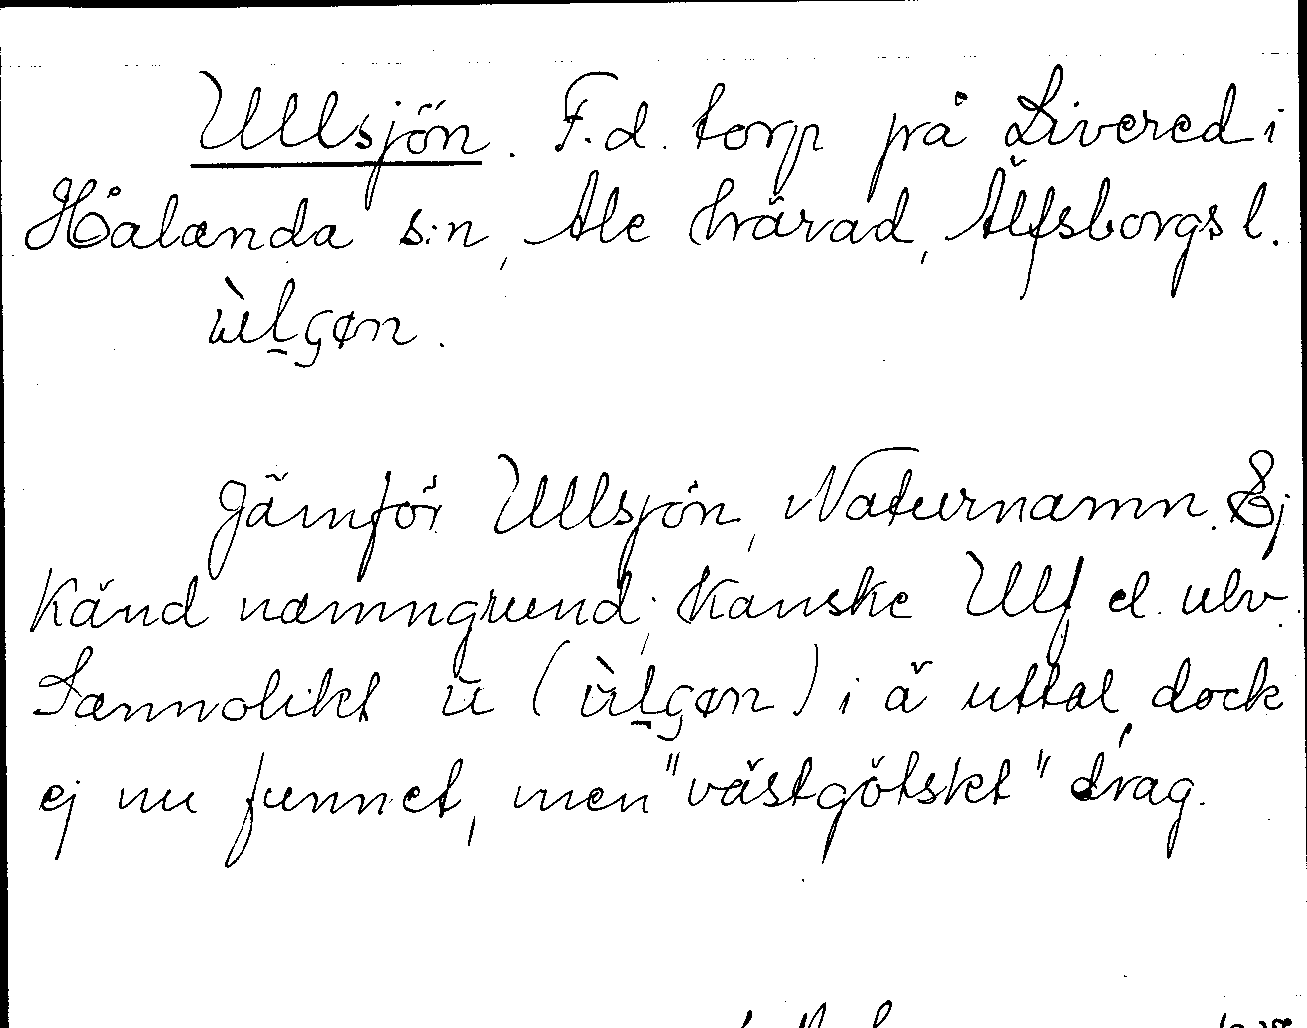 Ullsjön. F.d. torp på Livered i
Hålanda s:n, Ale härad, Älfsborgs l.
ùl̠çøn.
Jämför Ullsjön, Naturnamn. Ej
känd namngrund; kanske Ulf el. ulv.
Sannolikt ù (ùl̠çøn) i ä uttal, dock
ej nu funnet, men "västgötskt" drag.